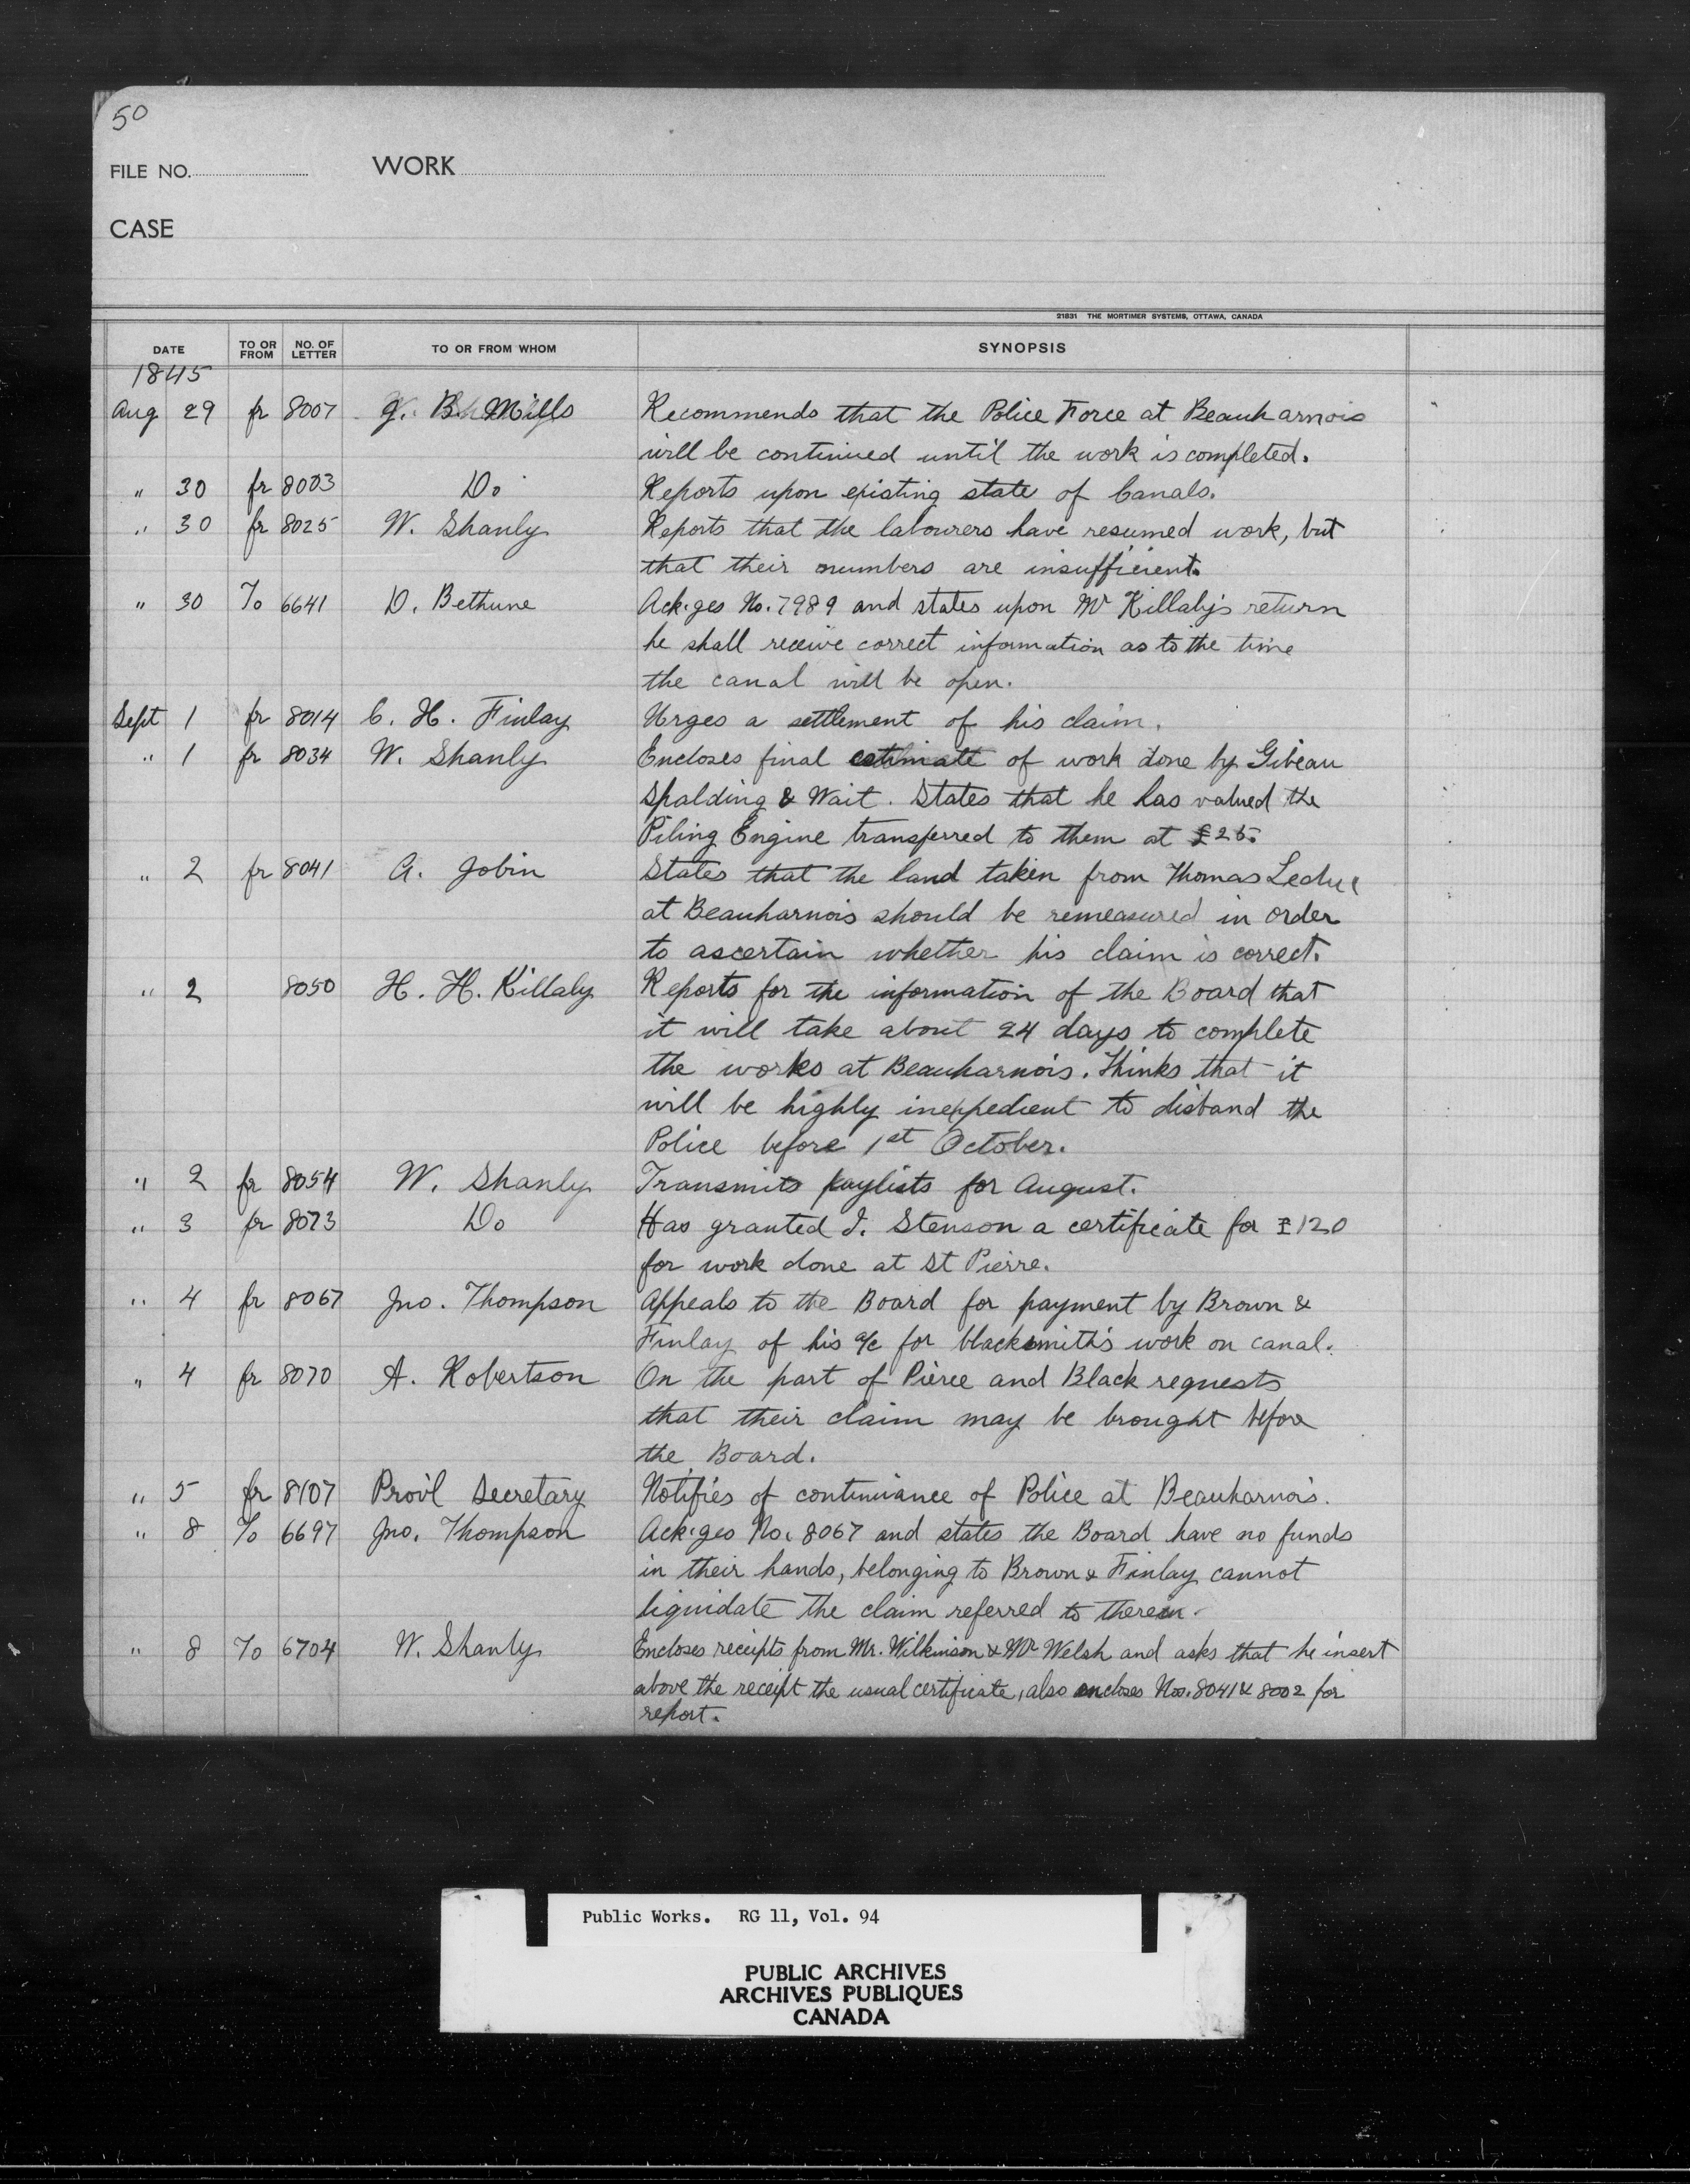 50
FILE NO. WORK
CASE
21831 THE MORTIMER SYSTEMS, OTTAWA, CANADA
DATE TO OR FROM NO. OF LETTER TO OR FROM WHOM SYNOPSIS
1845
Aug 29 fr 8007 Mills Recommends that the Police Force at Beauharnois
will be continued until the work is completed.
" 30 fr 8003 Do Reports upon existing state of Canals.
" 30 fr 8025 W. Shanly Reports that the labourers have resumed work, but
that their numbers are insufficient.
" 30 To 6641 D. Bethune Ack.ges No. 7989 and states upon Mr Killaly's return
he shall receive correct information as to the time
the canal will be open.
Sept 1 fr 8014 C. H. Finlay Urges a settlement of his claim.
" 1 fr 8034 W. Shanly Encloses final estimate of work done by Gibeau
Spalding & Wait. States that he has valued the
Piling Engine transferred to them at £25.
" 2 fr 8041 A. Jobin States that the land taken from Thomas Leduc
at Beauharnois should be remeasured in order
to ascertain whether his claim is correct.
" 2 8050 H. H. Killaly Reports for the information of the Board that
it will take about 24 days to complete
the works at Beauharnois. Thinks that it
will be highly inexpedient to disband the
Police before 1st October.
" 2 fr 8054 W. Shanly Transmits paylists for August.
" 3 fr 8073 Do Has granted J. Stenson a certificate for £120
for work done at St Pierre.
" 4 fr 8067 Jno. Thompson Appeals to the Board for payment by Brown &
Finlay of his a/c for blacksmith's work on canal.
" 4 fr 8070 A. Robertson On the part of Pierce and Black requests
that their claim may be brought before
the Board.
" 5 fr 8107 Prov'l Secretary Notifies of continuance of Police at Beauharnois.
" 8 To 6697 Jno. Thompson Ack.ges No. 8067 and states the Board have no funds
in their hands, belonging to Brown & Finlay cannot
liquidate the claim referred to therein.
" 8 To 6704 W. Shanly Encloses receipts from Mr. Wilkinson & Mr Welsh and asks that he insert
above the receipt the usual certificate, also encloses Nos. 8041 & 8002 for
report.
Public Works. RG 11, Vol. 94
PUBLIC ARCHIVES
ARCHIVES PUBLIQUES
CANADA